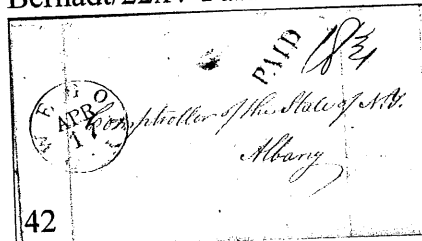 PAID 18¾
APR
17
Comptroller of the State of N.Y.
Albany
42